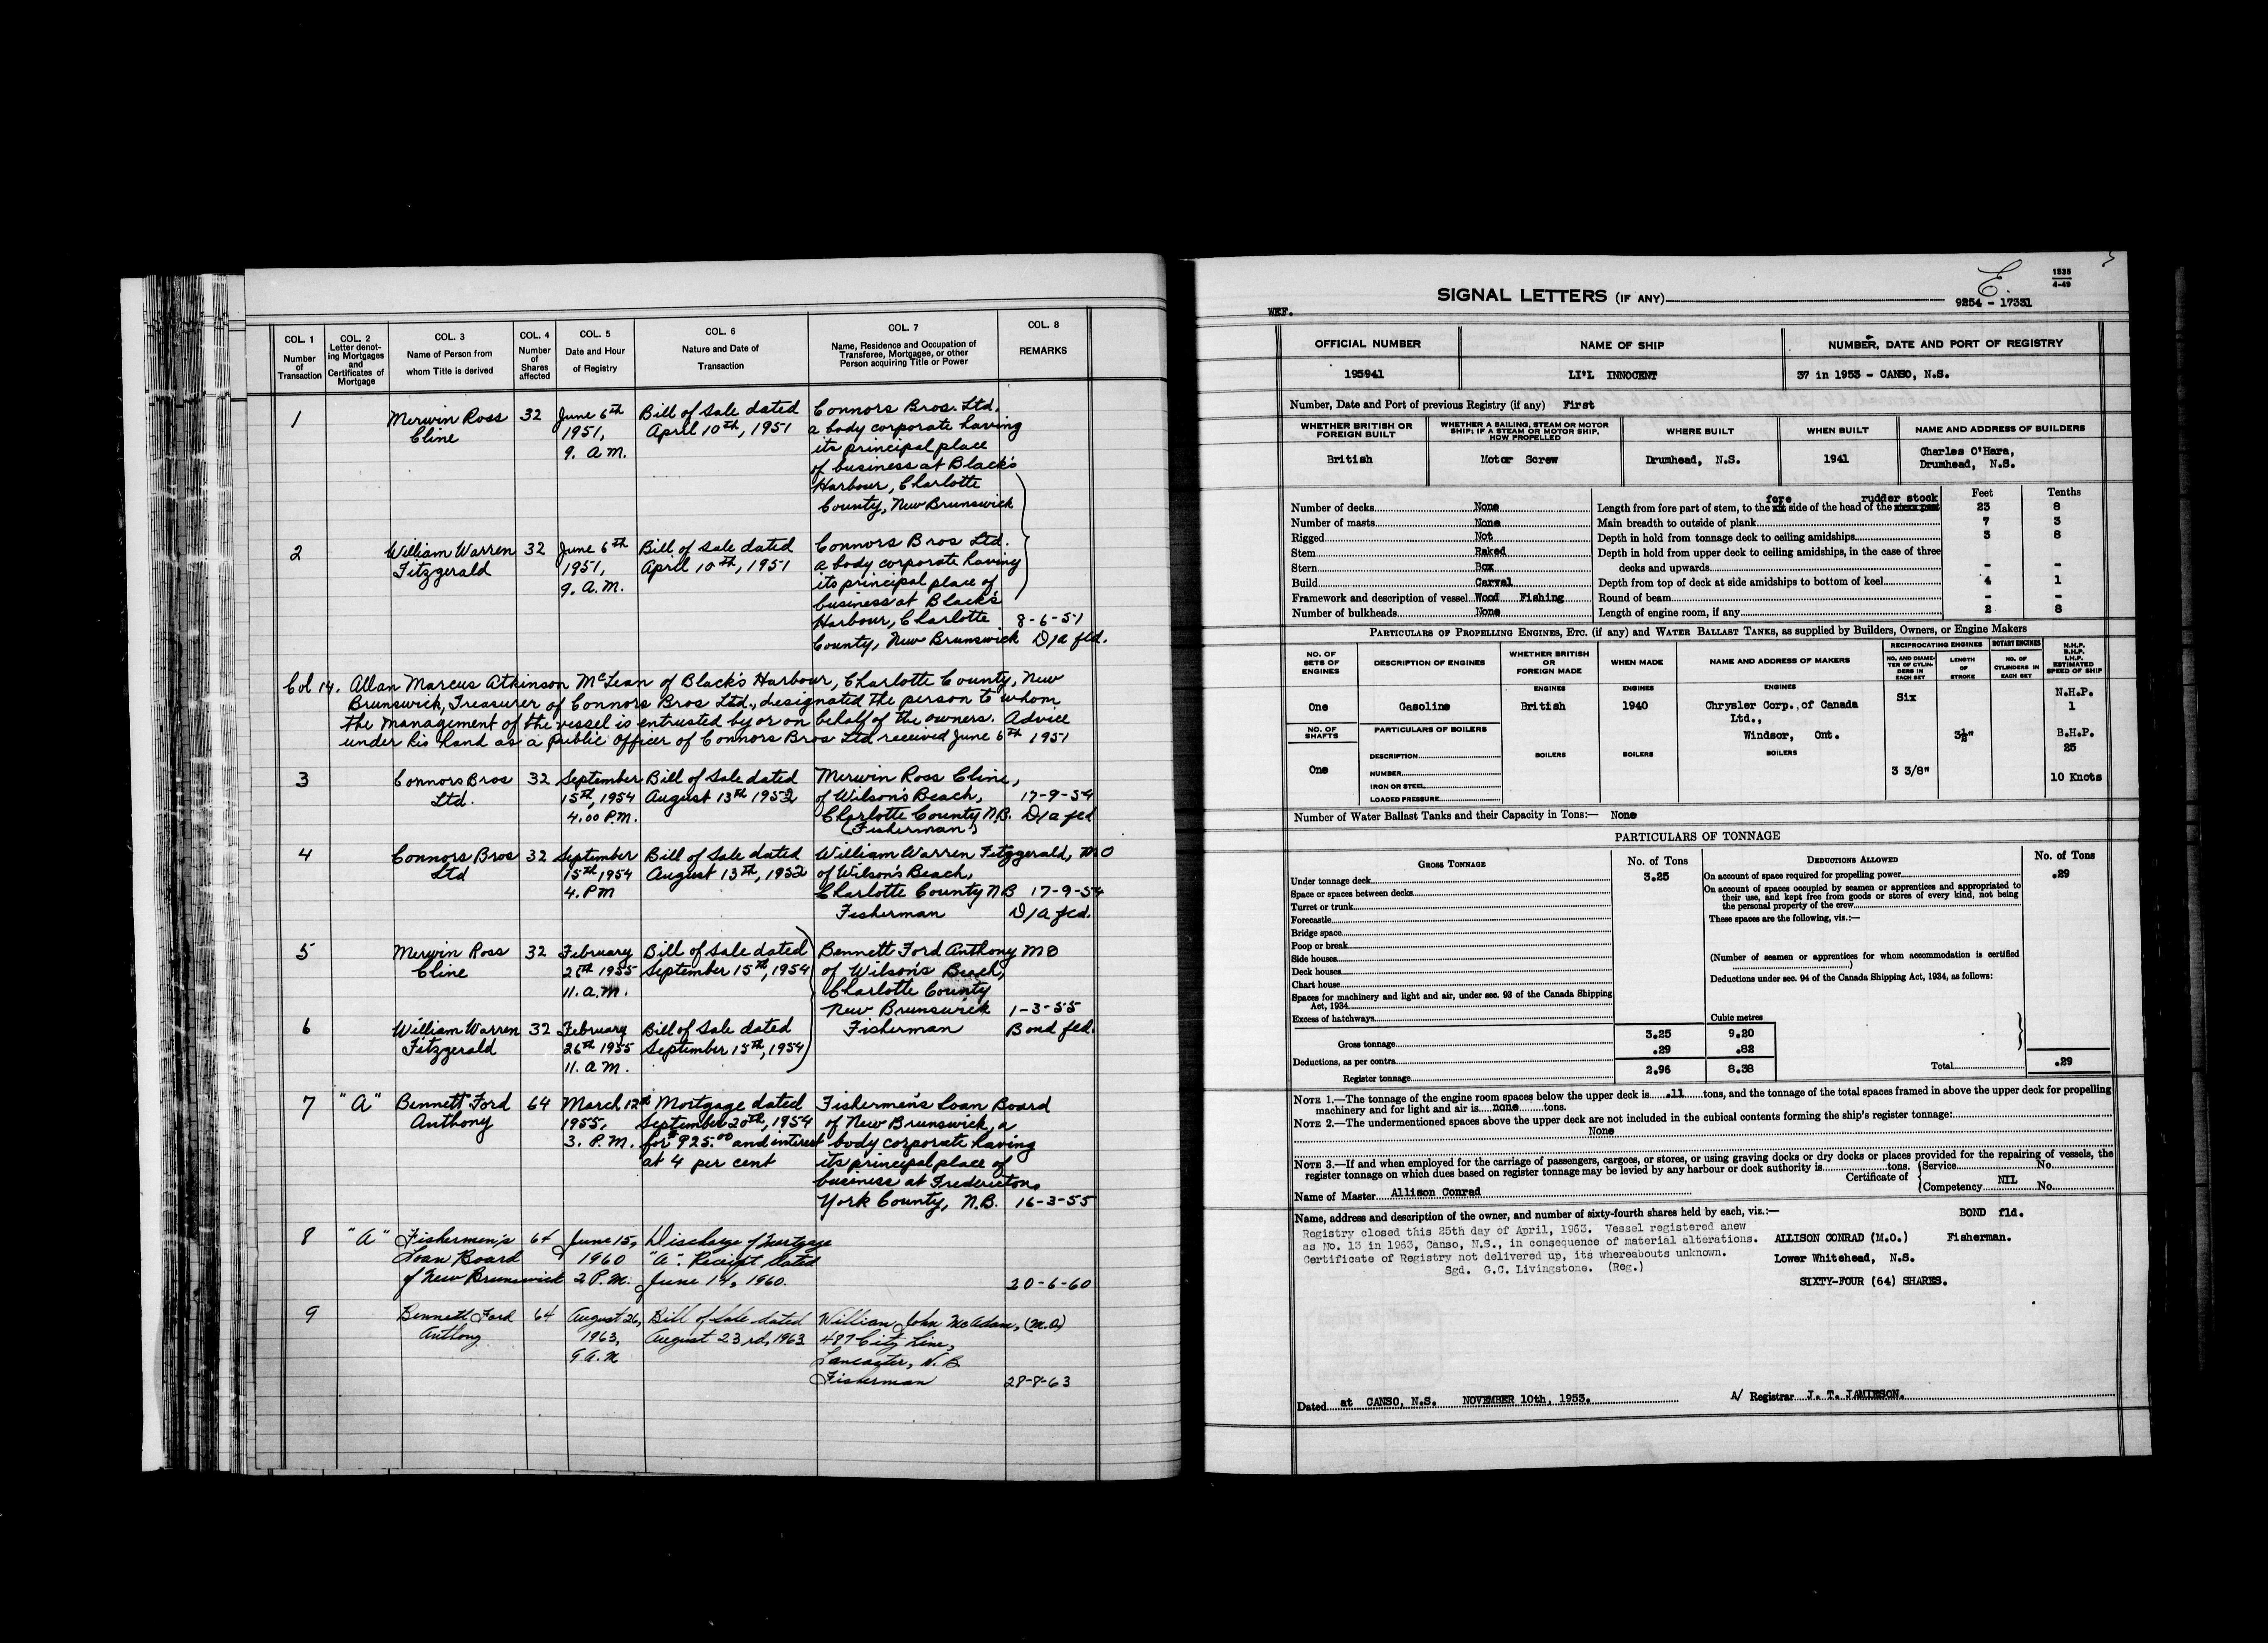 COL. 1 Number of Transaction
COL. 2 Letter denoting Mortgages and Certificates of Mortgage
COL. 3 Name of Person from whom Title is derived
COL. 4 Number of Shares affected
COL. 5 Date and Hour of Registry
COL. 6 Nature and Date of Transaction
COL. 7 Name, Residence and Occupation of Transferee, Mortgagee, or other Person acquiring Title or Power
COL. 8 REMARKS
1 Merwin Ross 32 June 6th Bill of Sale dated Connors Bros. Ltd.
Cline 1951, April 10th, 1951 a body corporate having
9. A M. its principal place
of business at Black's
Harbour, Charlotte
County, New Brunswick
2 William Warren 32 June 6th Bill of Sale dated Connors Bros Ltd.
Fitzgerald 1951, April 10th, 1951 a body corporate having
9. A.M. its principal place of
business at Black's
Harbour, Charlotte 8-6-51
County, New Brunswick D/a fld.
Col 14. Allan Marcus Atkinson McLean of Black's Harbour, Charlotte County, New
Brunswick, Treasurer of Connors Bros Ltd., designated the person to whom
the management of the vessel is entrusted by or on behalf of the owners. Advice
under his hand as a public officer of Connors Bros Ltd received June 6th 1951
3 Connors Bros 32 September Bill of Sale dated Merwin Ross Cline,
Ltd. 15th, 1954 August 13th 1952 of Wilson's Beach, 17-9-54
4.00 P.M. Charlotte County N.B. D/a fld
(Fisherman)
4 Connors Bros 32 September Bill of Sale dated William Warren Fitzgerald, M O
Ltd 15th 1954 August 13th, 1952 of Wilson's Beach,
4. P M Charlotte County N B 17-9-54
Fisherman D/a fld.
5 Merwin Ross 32 February Bill of Sale dated Bennett Ford Anthony M O
Cline 26th 1955 September 15th, 1954 of Wilson's Beach,
11. a.m. Charlotte County
New Brunswick 1-3-55
6 William Warren 32 February Bill of Sale dated Fisherman Bond fld.
Fitzgerald 26th 1955 September 15th, 1954
11. a M.
7 "A" Bennett Ford 64 March 12th Mortgage dated Fishermen's Loan Board
Anthony 1955, September 20th, 1954 of New Brunswick, a
3. P.M. for $925.00 and interest body corporate having
at 4 per cent its principal place of
business at Fredericton,
York County, N.B. 16-3-55
8 "A" Fishermen's 64 June 15, Discharge of Mortgage
Loan Board 1960 "A". Receipt dated
of New Brunswick 2 P.M. June 14, 1960. 20-6-60
9 Bennett Ford 64 August 26, Bill of Sale dated William John McAdam, (M.O)
Anthony 1963, August 23rd, 1963 487 City Line,
9 A.M Lancaster, N.B.
Fisherman 28-8-63
E.
1535
4-49
SIGNAL LETTERS (IF ANY)
9254 - 17331
WEF.
OFFICIAL NUMBER NAME OF SHIP NUMBER, DATE AND PORT OF REGISTRY
195941 LI'L INNOCENT 37 in 1953 - CANSO, N.S.
Number, Date and Port of previous Registry (if any) First
WHETHER BRITISH OR FOREIGN BUILT
WHETHER A SAILING, STEAM OR MOTOR SHIP; IF A STEAM OR MOTOR SHIP, HOW PROPELLED
WHERE BUILT
WHEN BUILT
NAME AND ADDRESS OF BUILDERS
British Motor Screw Drumhead, N.S. 1941 Charles O'Hara,
Drumhead, N.S.
Feet Tenths
fore rudder stock
Number of decks None Length from fore part of stem, to the side of the head of the 23 8
Number of masts None Main breadth to outside of plank 7 3
Rigged Not Depth in hold from tonnage deck to ceiling amidships 3 8
Stem Raked Depth in hold from upper deck to ceiling amidships, in the case of three
Stern Box decks and upwards - -
Build Carval Depth from top of deck at side amidships to bottom of keel 4 1
Framework and description of vessel Wood Fishing Round of beam - -
Number of bulkheads None Length of engine room, if any 2 8
PARTICULARS OF PROPELLING ENGINES, ETC. (if any) and WATER BALLAST TANKS, as supplied by Builders, Owners, or Engine Makers
NO. OF SETS OF ENGINES
DESCRIPTION OF ENGINES
WHETHER BRITISH OR FOREIGN MADE
WHEN MADE
NAME AND ADDRESS OF MAKERS
RECIPROCATING ENGINES
NO. AND DIAMETER OF CYLINDERS IN EACH SET
LENGTH OF STROKE
ROTARY ENGINES
NO. OF CYLINDERS IN EACH SET
N.H.P.
B.H.P.
I.H.P.
ESTIMATED SPEED OF SHIP
ENGINES ENGINES ENGINES
One Gasoline British 1940 Chrysler Corp., of Canada Six N.H.P.
Ltd., 1
Windsor, Ont. 3½" B.H.P.
25
NO. OF SHAFTS
PARTICULARS OF BOILERS
BOILERS BOILERS BOILERS
One
DESCRIPTION
NUMBER 3 3/8" 10 Knots
IRON OR STEEL
LOADED PRESSURE
Number of Water Ballast Tanks and their Capacity in Tons:— None
PARTICULARS OF TONNAGE
GROSS TONNAGE No. of Tons DEDUCTIONS ALLOWED No. of Tons
Under tonnage deck 3.25 On account of space required for propelling power .29
Space or spaces between decks
Turret or trunk
Forecastle
Bridge space
Poop or break
Side houses
Deck houses
Chart house
Spaces for machinery and light and air, under sec. 93 of the Canada Shipping
Act, 1934
Excess of hatchways
On account of spaces occupied by seamen or apprentices and appropriated to
their use, and kept free from goods or stores of every kind, not being
the personal property of the crew
These spaces are the following, viz.:—
(Number of seamen or apprentices for whom accommodation is certified
)
Deductions under sec. 94 of the Canada Shipping Act, 1934, as follows:
Cubic metres
Gross tonnage 3.25 9.20
Deductions, as per contra .29 .82
Register tonnage 2.96 8.38
Total .29
NOTE 1.—The tonnage of the engine room spaces below the upper deck is .11 tons, and the tonnage of the total spaces framed in above the upper deck for propelling
machinery and for light and air is none tons.
NOTE 2.—The undermentioned spaces above the upper deck are not included in the cubical contents forming the ship's register tonnage:
None
NOTE 3.—If and when employed for the carriage of passengers, cargoes, or stores, or using graving docks or dry docks or places provided for the repairing of vessels, the
register tonnage on which dues based on register tonnage may be levied by any harbour or dock authority is tons.
Certificate of Service No.
NIL
Competency No.
Name of Master Allison Conrad
Name, address and description of the owner, and number of sixty-fourth shares held by each, viz.:— BOND fld.
Registry closed this 25th day of April, 1963. Vessel registered anew
as No. 13 in 1963, Canso, N.S., in consequence of material alterations.
Certificate of Registry not delivered up, its whereabouts unknown.
Sgd. G.C. Livingstone. (Reg.)
ALLISON CONRAD (M.O.) Fisherman.
Lower Whitehead, N.S.
SIXTY-FOUR (64) SHARES.
Dated at CANSO, N.S. NOVEMBER 10th, 1953. A/ Registrar J. T. JAMIESON.